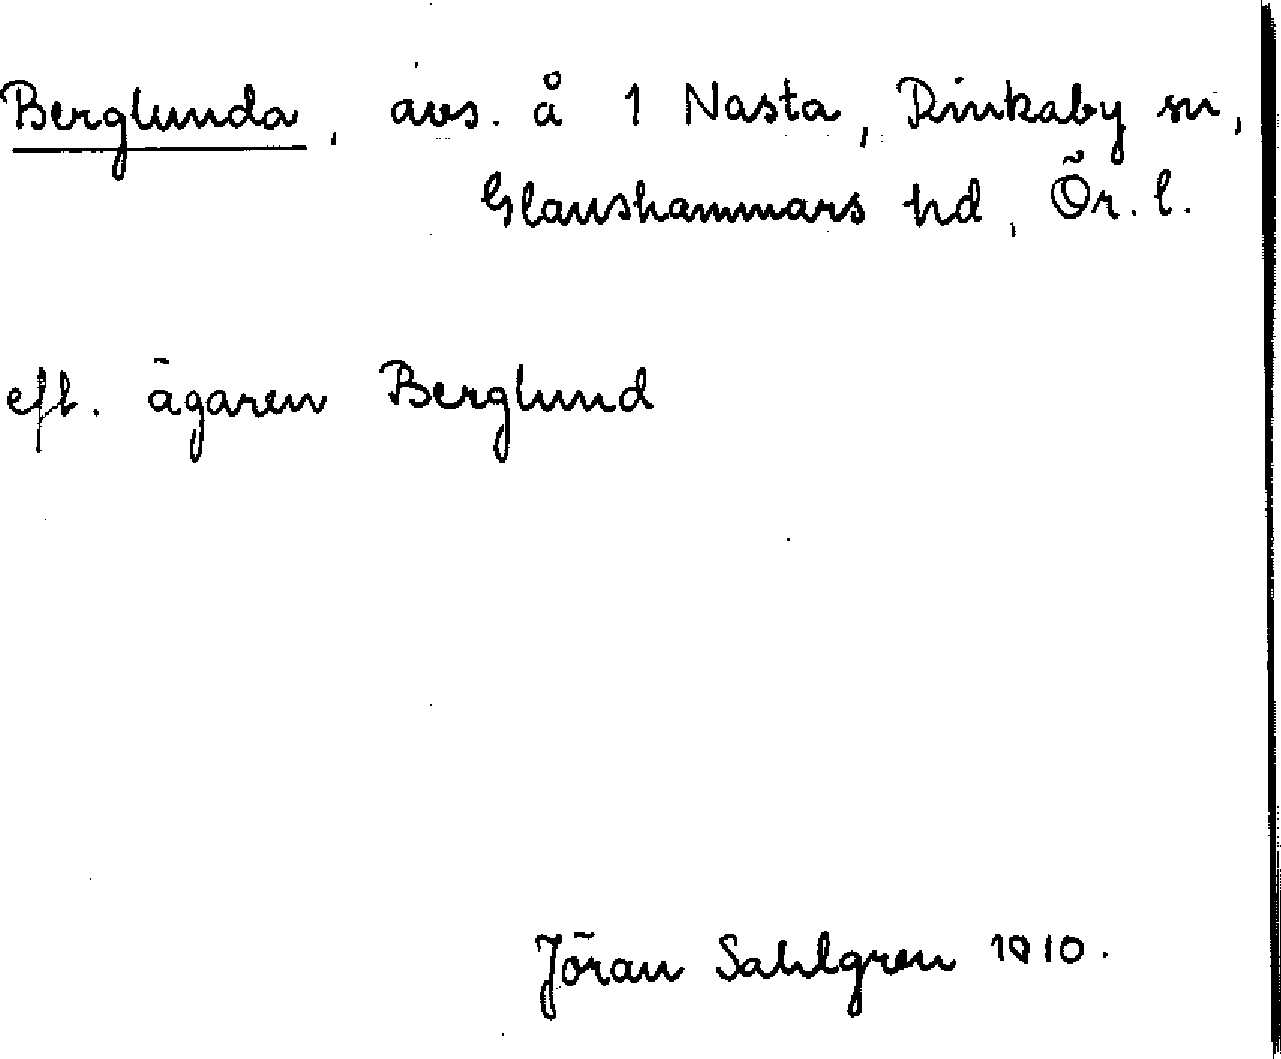 Berglunda, avs. å 1 Nasta, Rinkaby sn,
Glanshammars hd, Ör. l.
eft. ägaren Berglund
Jöran Sahlgren 1910.